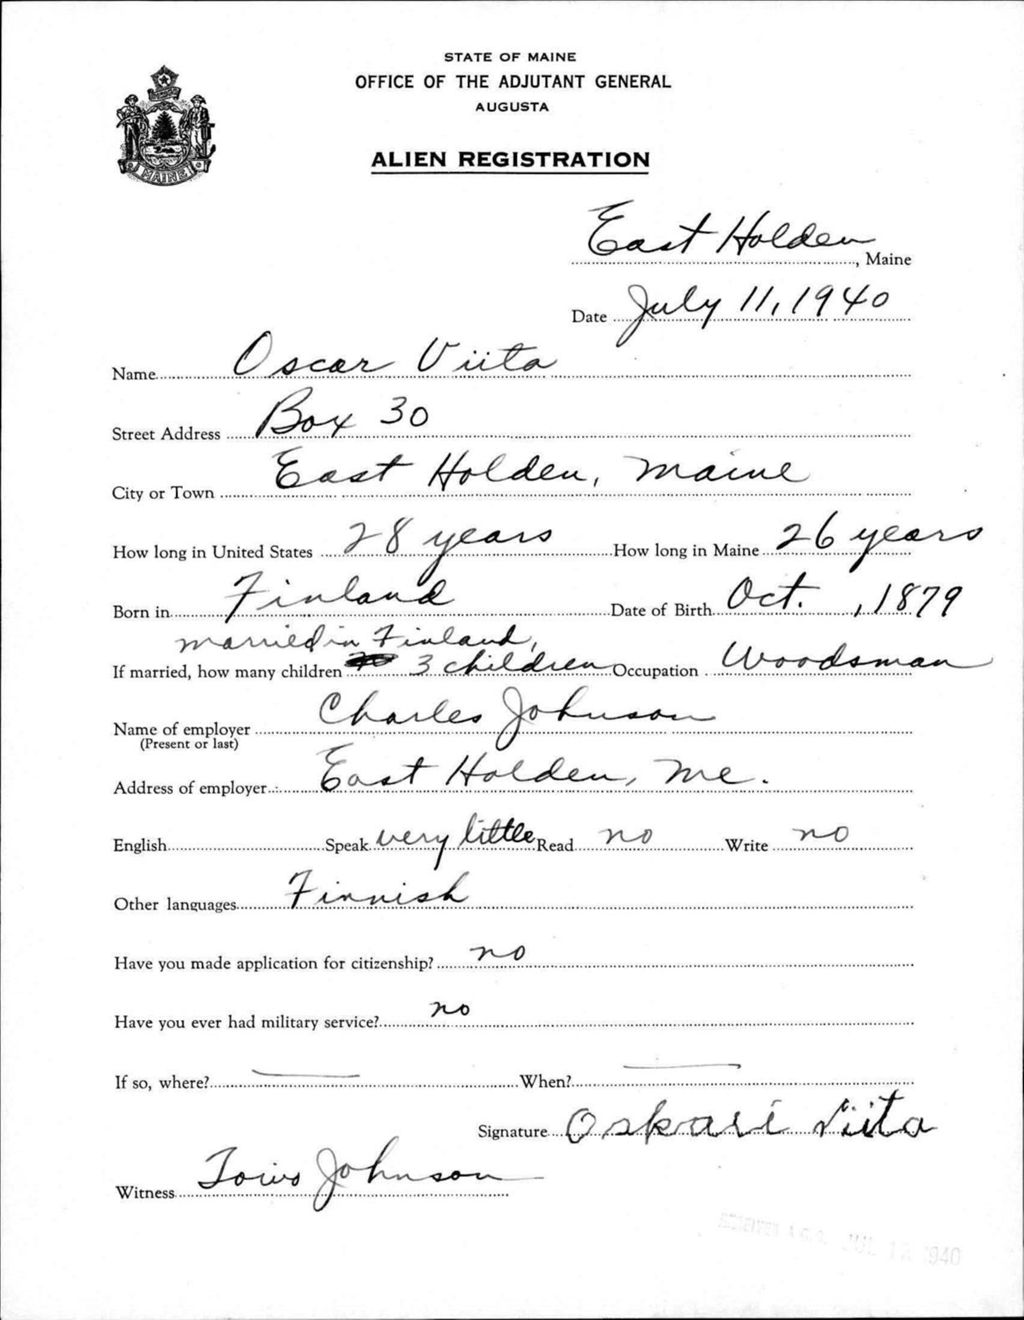 STATE OF MAINE
OFFICE OF THE ADJUTANT GENERAL
AUGUSTA
MAINE
ALIEN REGISTRATION
East Holden, Maine
Date July 11, 1940
Name Oscar Viita
Street Address Box 30
City or Town East Holden, Maine
How long in United States 28 years How long in Maine 26 years
Born in Finland Date of Birth Oct. , 1879
married in Finland,
If married, how many children 3 children Occupation Woodsman
Name of employer Charles Johnson
(Present or last)
Address of employer East Holden, Me.
English Speak very little Read no Write no
Other languages Finnish
Have you made application for citizenship? no
Have you ever had military service? no
If so, where? — When? —
Signature Oskari Viita
Witness Johnson
JUL 12 1940